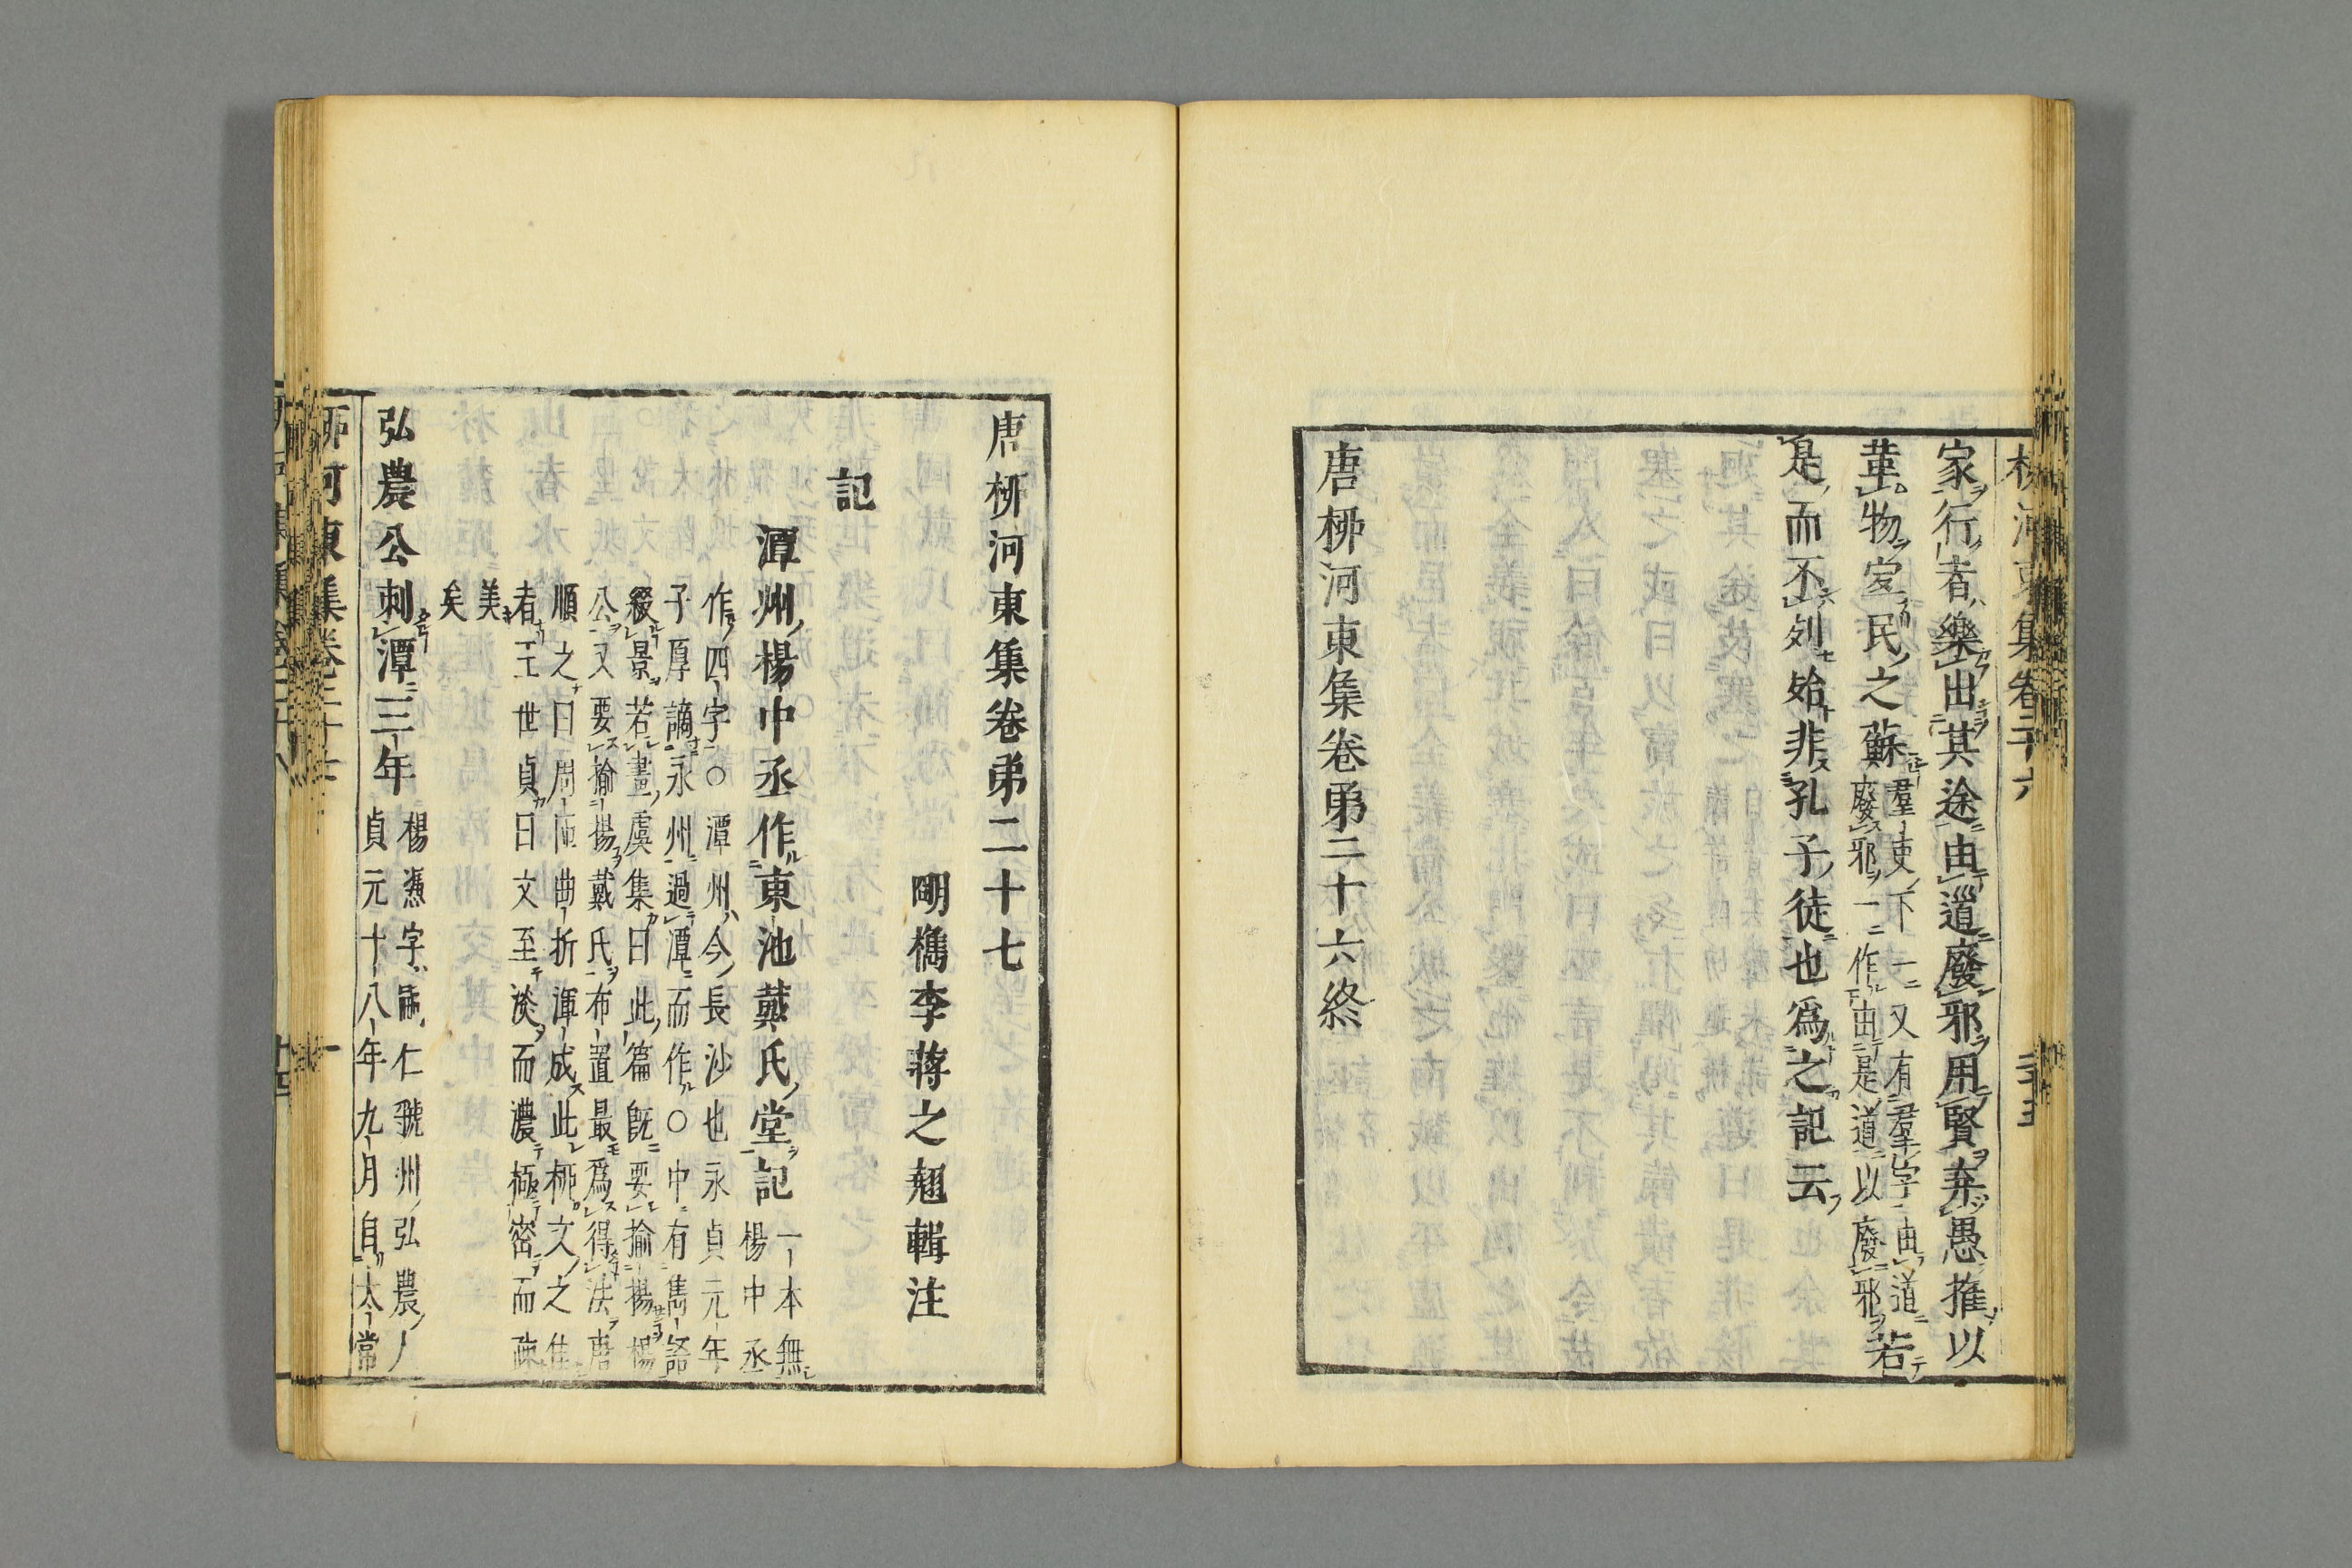 家行者樂出其途由道廢邪用賢弃愚推以
革物宜民之蘇
羣吏下一又有羣字由道
廢邪一作由是道以廢邪
若
是而不列殆非孔子徒也爲之記云
唐柳河東集卷第二十六終
唐柳河東集卷第二十七
明檇李蔣之翹輯注
記
潭州楊中丞作東池戴氏堂記
一本無
楊中丞
作四字○潭州今長沙也永貞元年
子厚謫永州過潭而作○中有雋語
綴景若畫虞集曰此篇旣要揄楊楊
公又要揄揚戴氏布置最爲得法唐
順之曰周匝曲折渾成此柳文之佳
者王世貞曰文至淡而濃極密而疎
美
矣
弘農公刺潭三年
楊憑字嗣仁虢州弘農人
貞元十八年九月自太常
柳河東集卷二十七
一